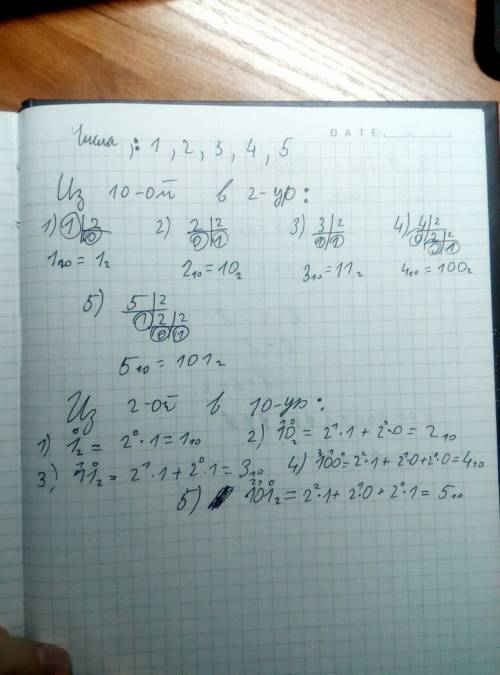 DATE
Числа ; 1 , 2 , 3 , 4 , 5
Из 10-ой в 2-ур :
1) 1 | 2 2) 2 | 2 3) 3 | 2 4) 4 | 2
0 0 1 1 1 0 2 2
0 1
1₁₀ = 1₂ 2₁₀ = 10₂ 3₁₀ = 11₂ 4₁₀ = 100₂
5) 5 | 2
1 2 2
0 1
5₁₀ = 101₂
Из 2-ой в 10-ур :
1) 1₂ = 2⁰·1 = 1₁₀ 2) 10₂ = 2¹·1 + 2⁰·0 = 2₁₀
3) 11₂ = 2¹·1 + 2⁰·1 = 3₁₀ 4) 100₂ = 2²·1 + 2¹·0 + 2⁰·0 = 4₁₀
5) 101₂ = 2²·1 + 2¹·0 + 2⁰·1 = 5₁₀